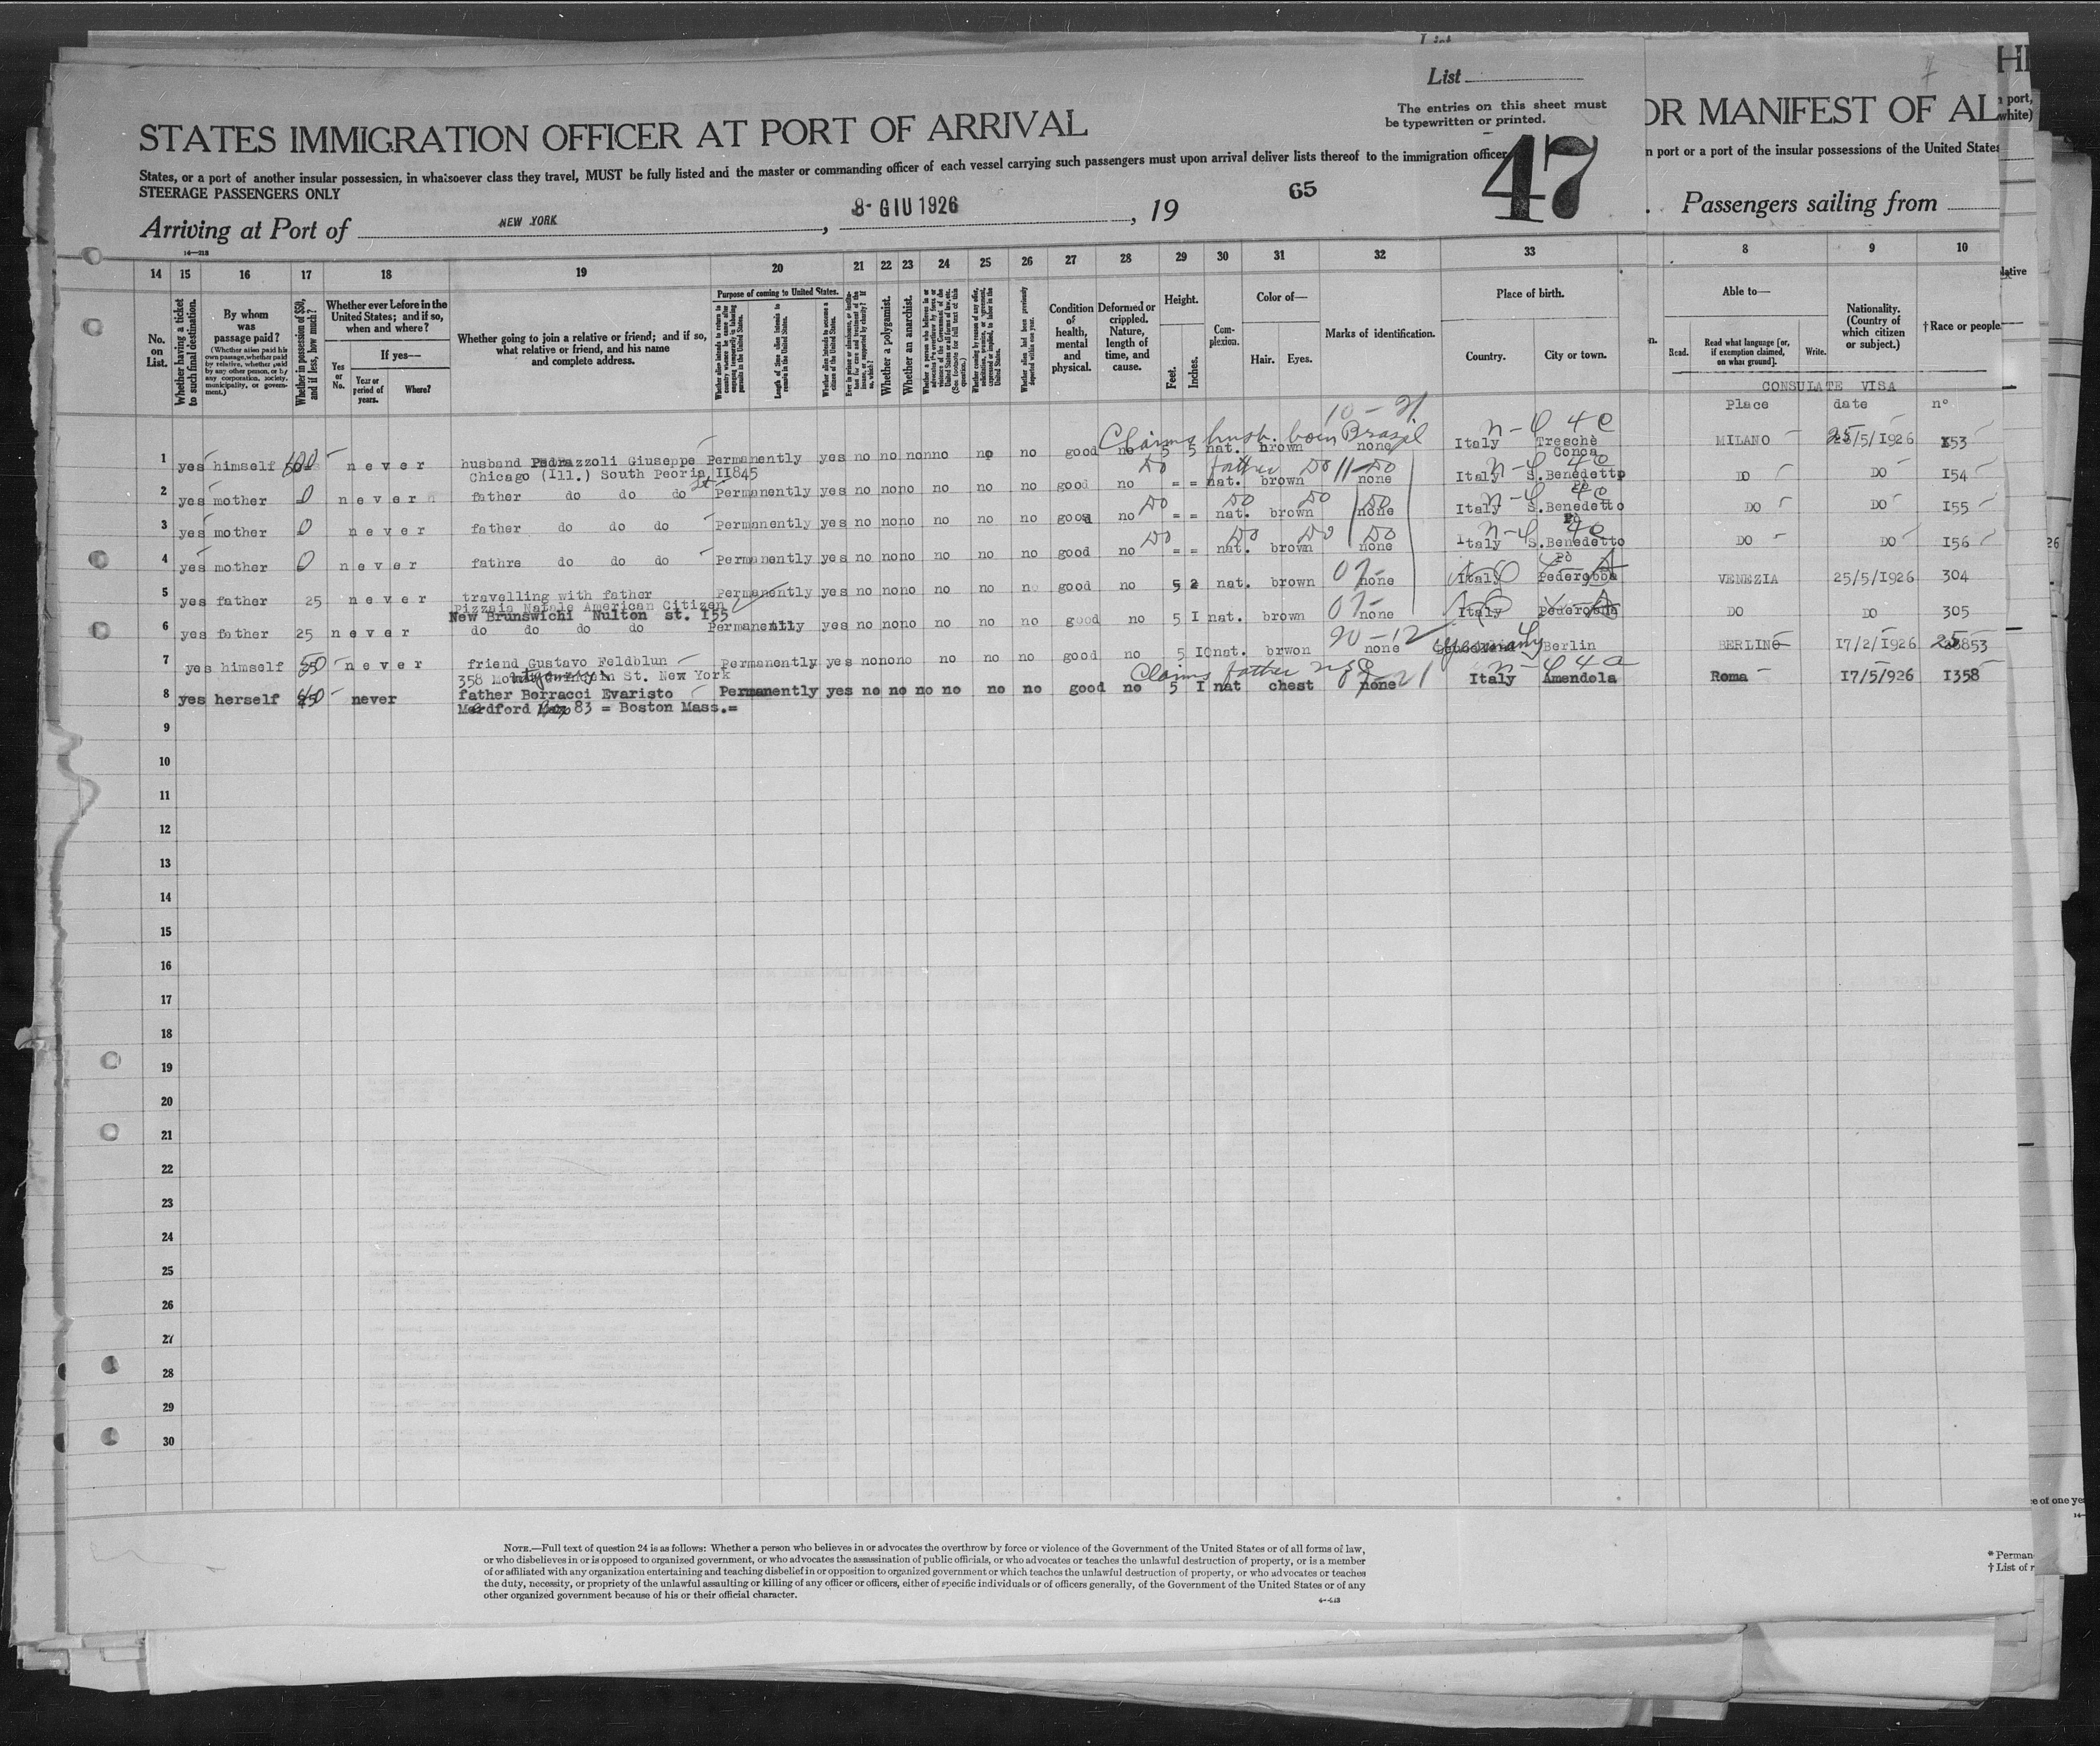 List
The entries on this sheet must
be typewritten or printed.
STATES IMMIGRATION OFFICER AT PORT OF ARRIVAL
47
OR MANIFEST OF AL
port,
white)
States, or a port of another insular possession, in whatsoever class they travel, MUST be fully listed and the master or commanding officer of each vessel carrying such passengers must upon arrival deliver lists thereof to the immigration officer
n port or a port of the insular possessions of the United States
STEERAGE PASSENGERS ONLY
65
Arriving at Port of NEW YORK, 8- GIU 1926, 19
Passengers sailing from
14 15 16 17 18 19 20 21 22 23 24 25 26 27 28 29 30 31 32 33 8 9 10
No. on List.
Whether having a ticket to such final destination.
By whom was passage paid?
(Whether alien paid his own passage, whether paid by relative, whether paid by any other person, or by any corporation, society, municipality, or government.)
Whether in possession of $50, and if less, how much?
Whether ever before in the United States; and if so, when and where?
Yes or No.
If yes—
Year or period of years.
Where?
Whether going to join a relative or friend; and if so, what relative or friend, and his name and complete address.
Purpose of coming to United States.
Length of time alien intends to remain in the United States.
Whether alien intends to become a citizen of the United States.
Whether a polygamist.
Whether an anarchist.
Condition of health, mental and physical.
Deformed or crippled. Nature, length of time, and cause.
Height.
Feet. Inches.
Complexion.
Color of—
Hair. Eyes.
Marks of identification.
Place of birth.
Country. City or town.
Able to—
Read. Read what language [or, if exemption claimed, on what ground]. Write.
Nationality. (Country of which citizen or subject.)
†Race or people.
CONSULATE VISA
Place date n°
10 - 21
Claims husb. born Brazil
n-4 4e
1 yes himself never husband Pedrazzoli Giuseppe Permanently yes no no no no no no good no 5 5 nat. brown none Italy Treschè Conca MILANO 25/5/1926 I53
Chicago (Ill.) South Peoria II845
Do father Do 11-Do n-4 4e
2 yes mother 0 never father do do do St Permanently yes no no no no no no good no = = nat. brown none Italy S.Benedetto Po DO DO I54
Do Do Do Do n-4 4e
3 yes mother 0 never father do do do Permanently yes no no no no no no good no = = nat. brown none Italy S.Benedetto Po DO DO I55
Do Do Do Do n-4 4e
4 yes mother 0 never fathre do do do Permanently yes no no no no no no good no = = nat. brown none Italy S.Benedetto Po DO DO I56
5 yes father 25 never travelling with father Permanently yes no no no no no no good no 5 2 nat. brown none Italy Pederobba VENEZIA 25/5/1926 304
Pizzaia Natale American Citizen
New Brunswichi Nulton st. I55
6 yes father 25 never do do do do Permanently yes no no no no no no good no 5 I nat. brown none Italy Pederobba DO DO 305
20-12
7 yes himself 50 never friend Gustavo Feldblun Permanently yes no no no no no no good no 5 IO nat. brwon none Germany Berlin BERLINO 17/2/1926
358 St. New York
Claims father
n-4 4a
8 yes herself never father Borracci Evaristo Permanently yes no no no no no no good no 5 I nat chest none Italy Amendola Roma 17/5/926 I358
Medford Box 83 = Boston Mass.=
9
10
11
12
13
14
15
16
17
18
19
20
21
22
23
24
25
26
27
28
29
30
e of one ye
NOTE.—Full text of question 24 is as follows: Whether a person who believes in or advocates the overthrow by force or violence of the Government of the United States or of all forms of law,
or who disbelieves in or is opposed to organized government, or who advocates the assassination of public officials, or who advocates or teaches the unlawful destruction of property, or is a member
of or affiliated with any organization entertaining and teaching disbelief in or opposition to organized government or which teaches the unlawful destruction of property, or who advocates or teaches
the duty, necessity, or propriety of the unlawful assaulting or killing of any officer or officers, either of specific individuals or of officers generally, of the Government of the United States or of any
other organized government because of his or their official character.
* Perman
† List of r